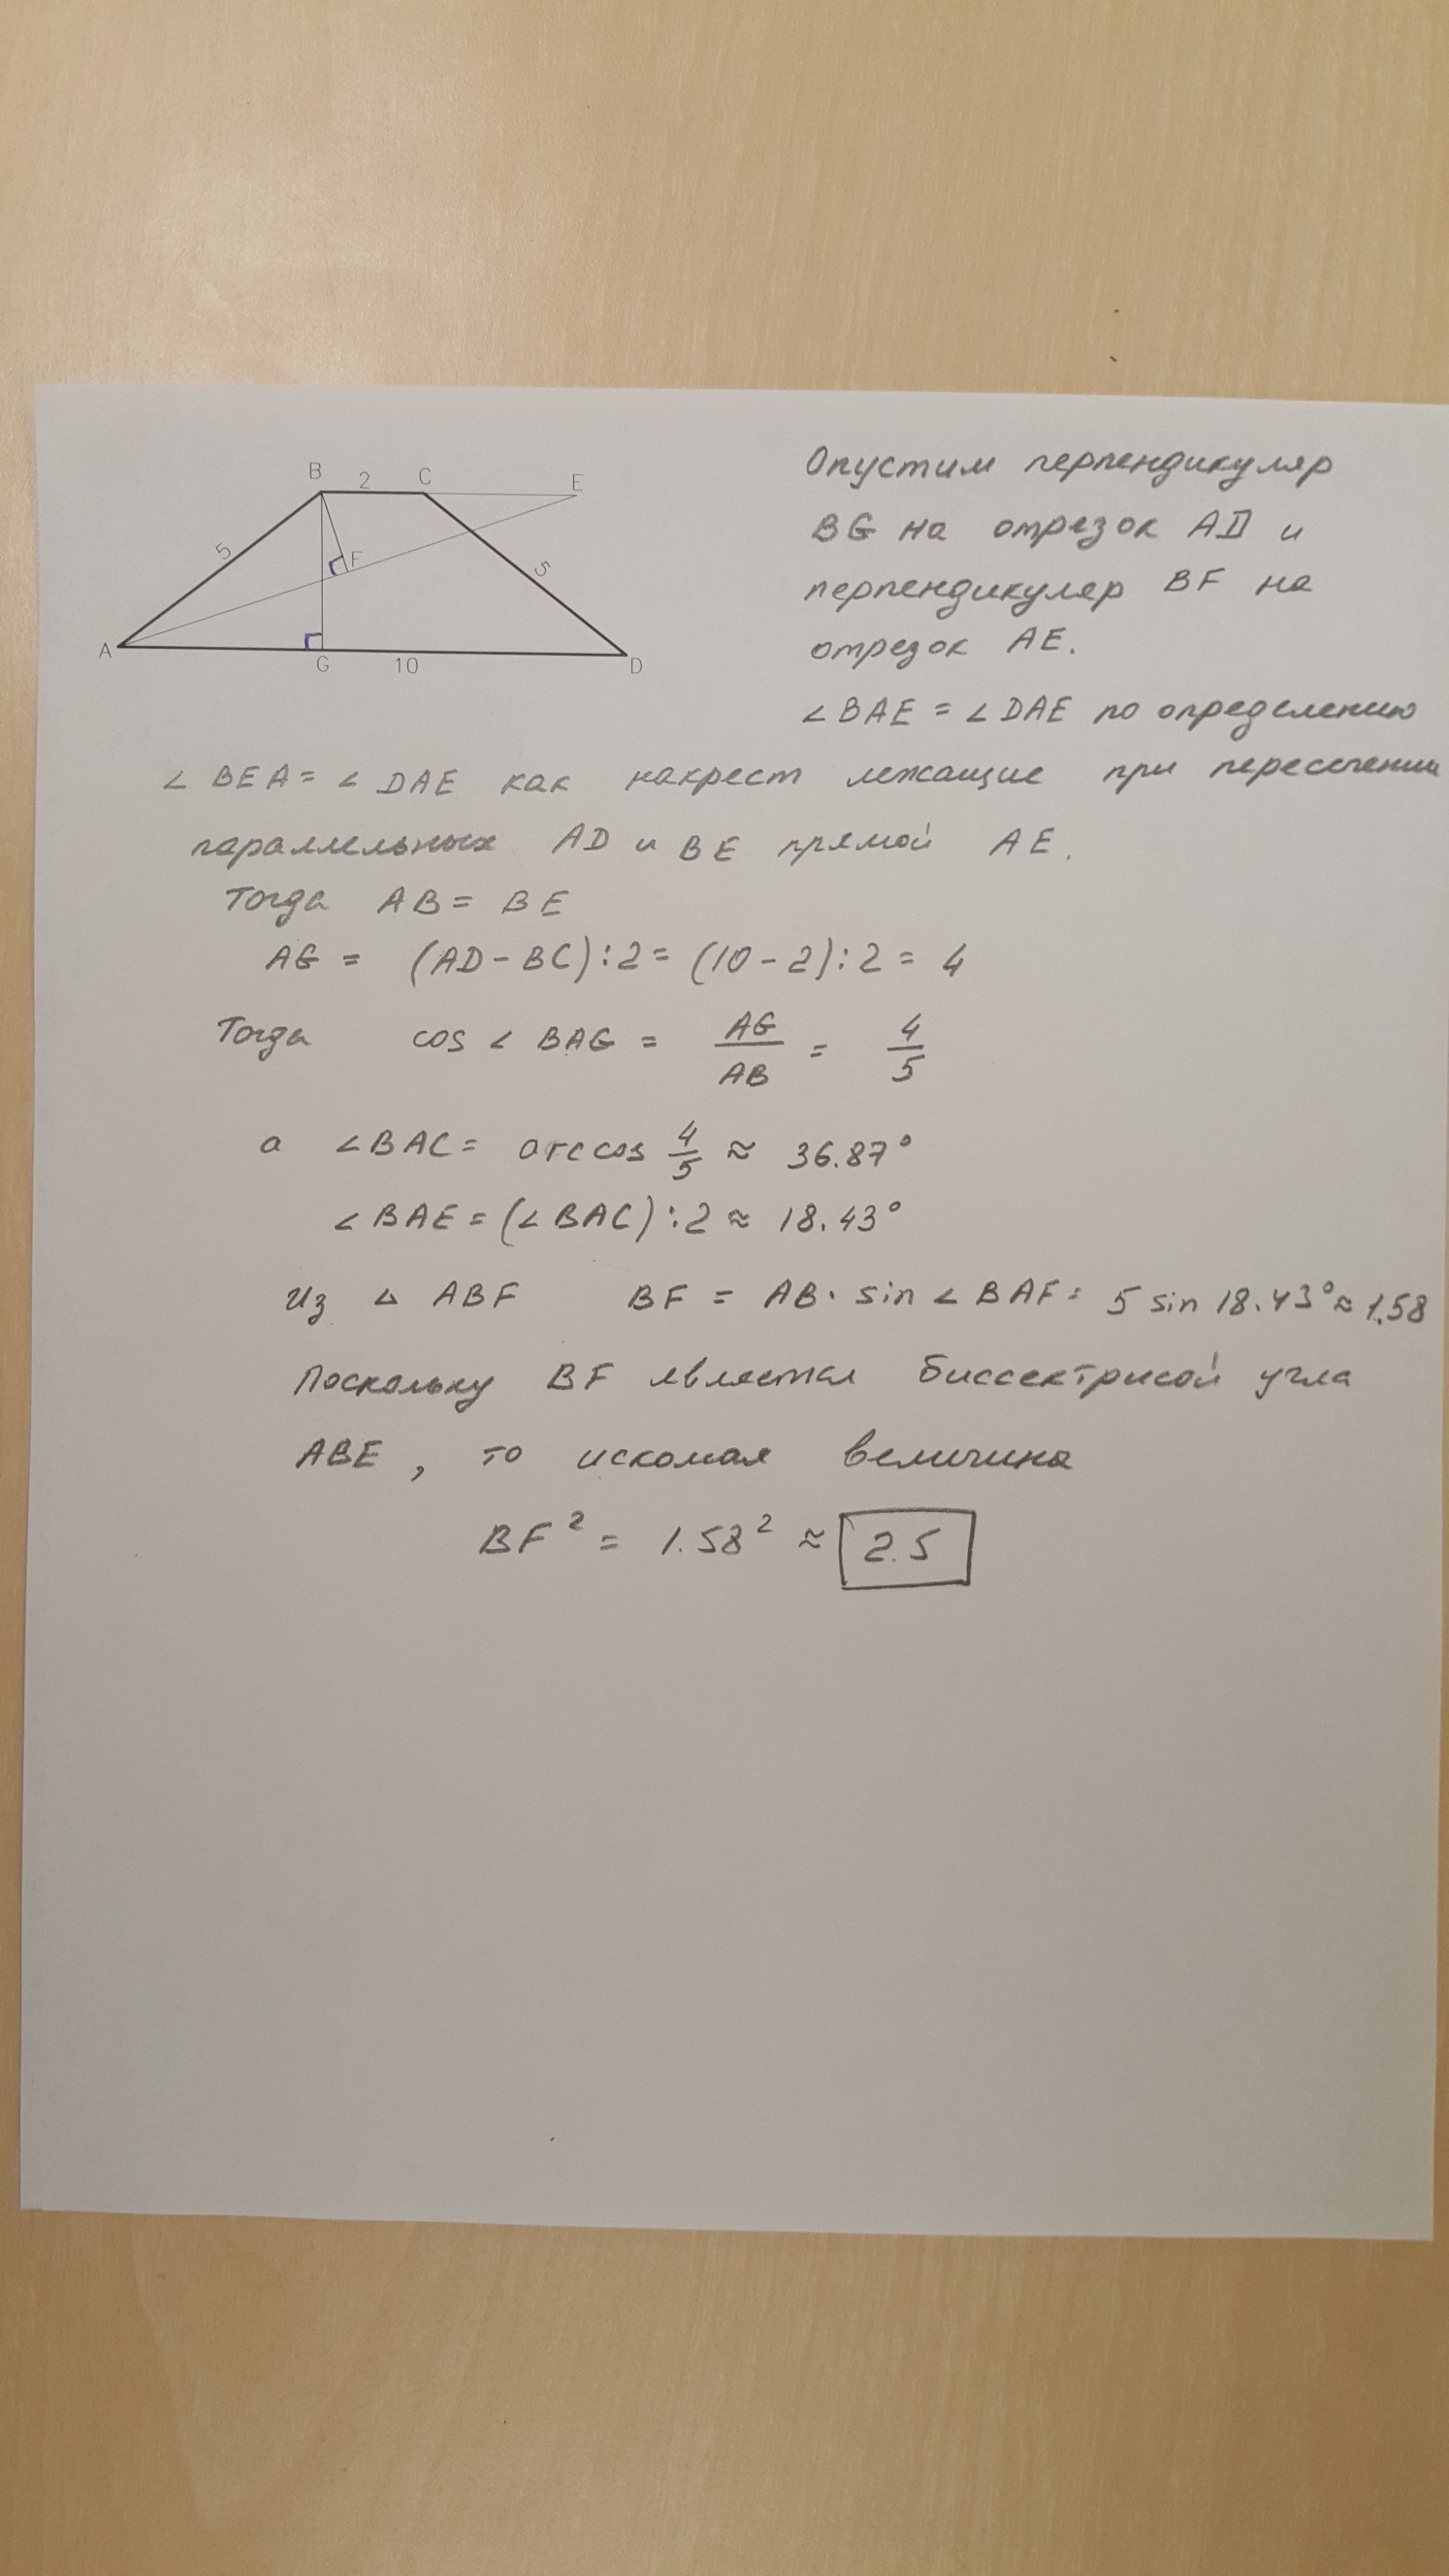 B 2 C E
5 F 5
A G 10 D
Опустим перпендикуляр
BG на отрезок AD и
перпендикуляр BF на
отрезок AE.
∠BAE = ∠DAE по определению
∠BEA = ∠DAE как накрест лежащие при пересечении
параллельных AD и BE прямой AE.
Тогда AB = BE
AG = (AD - BC) : 2 = (10 - 2) : 2 = 4
Тогда cos ∠BAG = AG/AB = 4/5
а ∠BAC = arccos 4/5 ≈ 36.87°
∠BAE = (∠BAC) : 2 ≈ 18.43°
Из △ ABF BF = AB · sin ∠BAF = 5 sin 18.43° ≈ 1.58
Поскольку BF является биссектрисой угла
ABE, то искомая величина
BF² = 1.58² ≈ 2.5